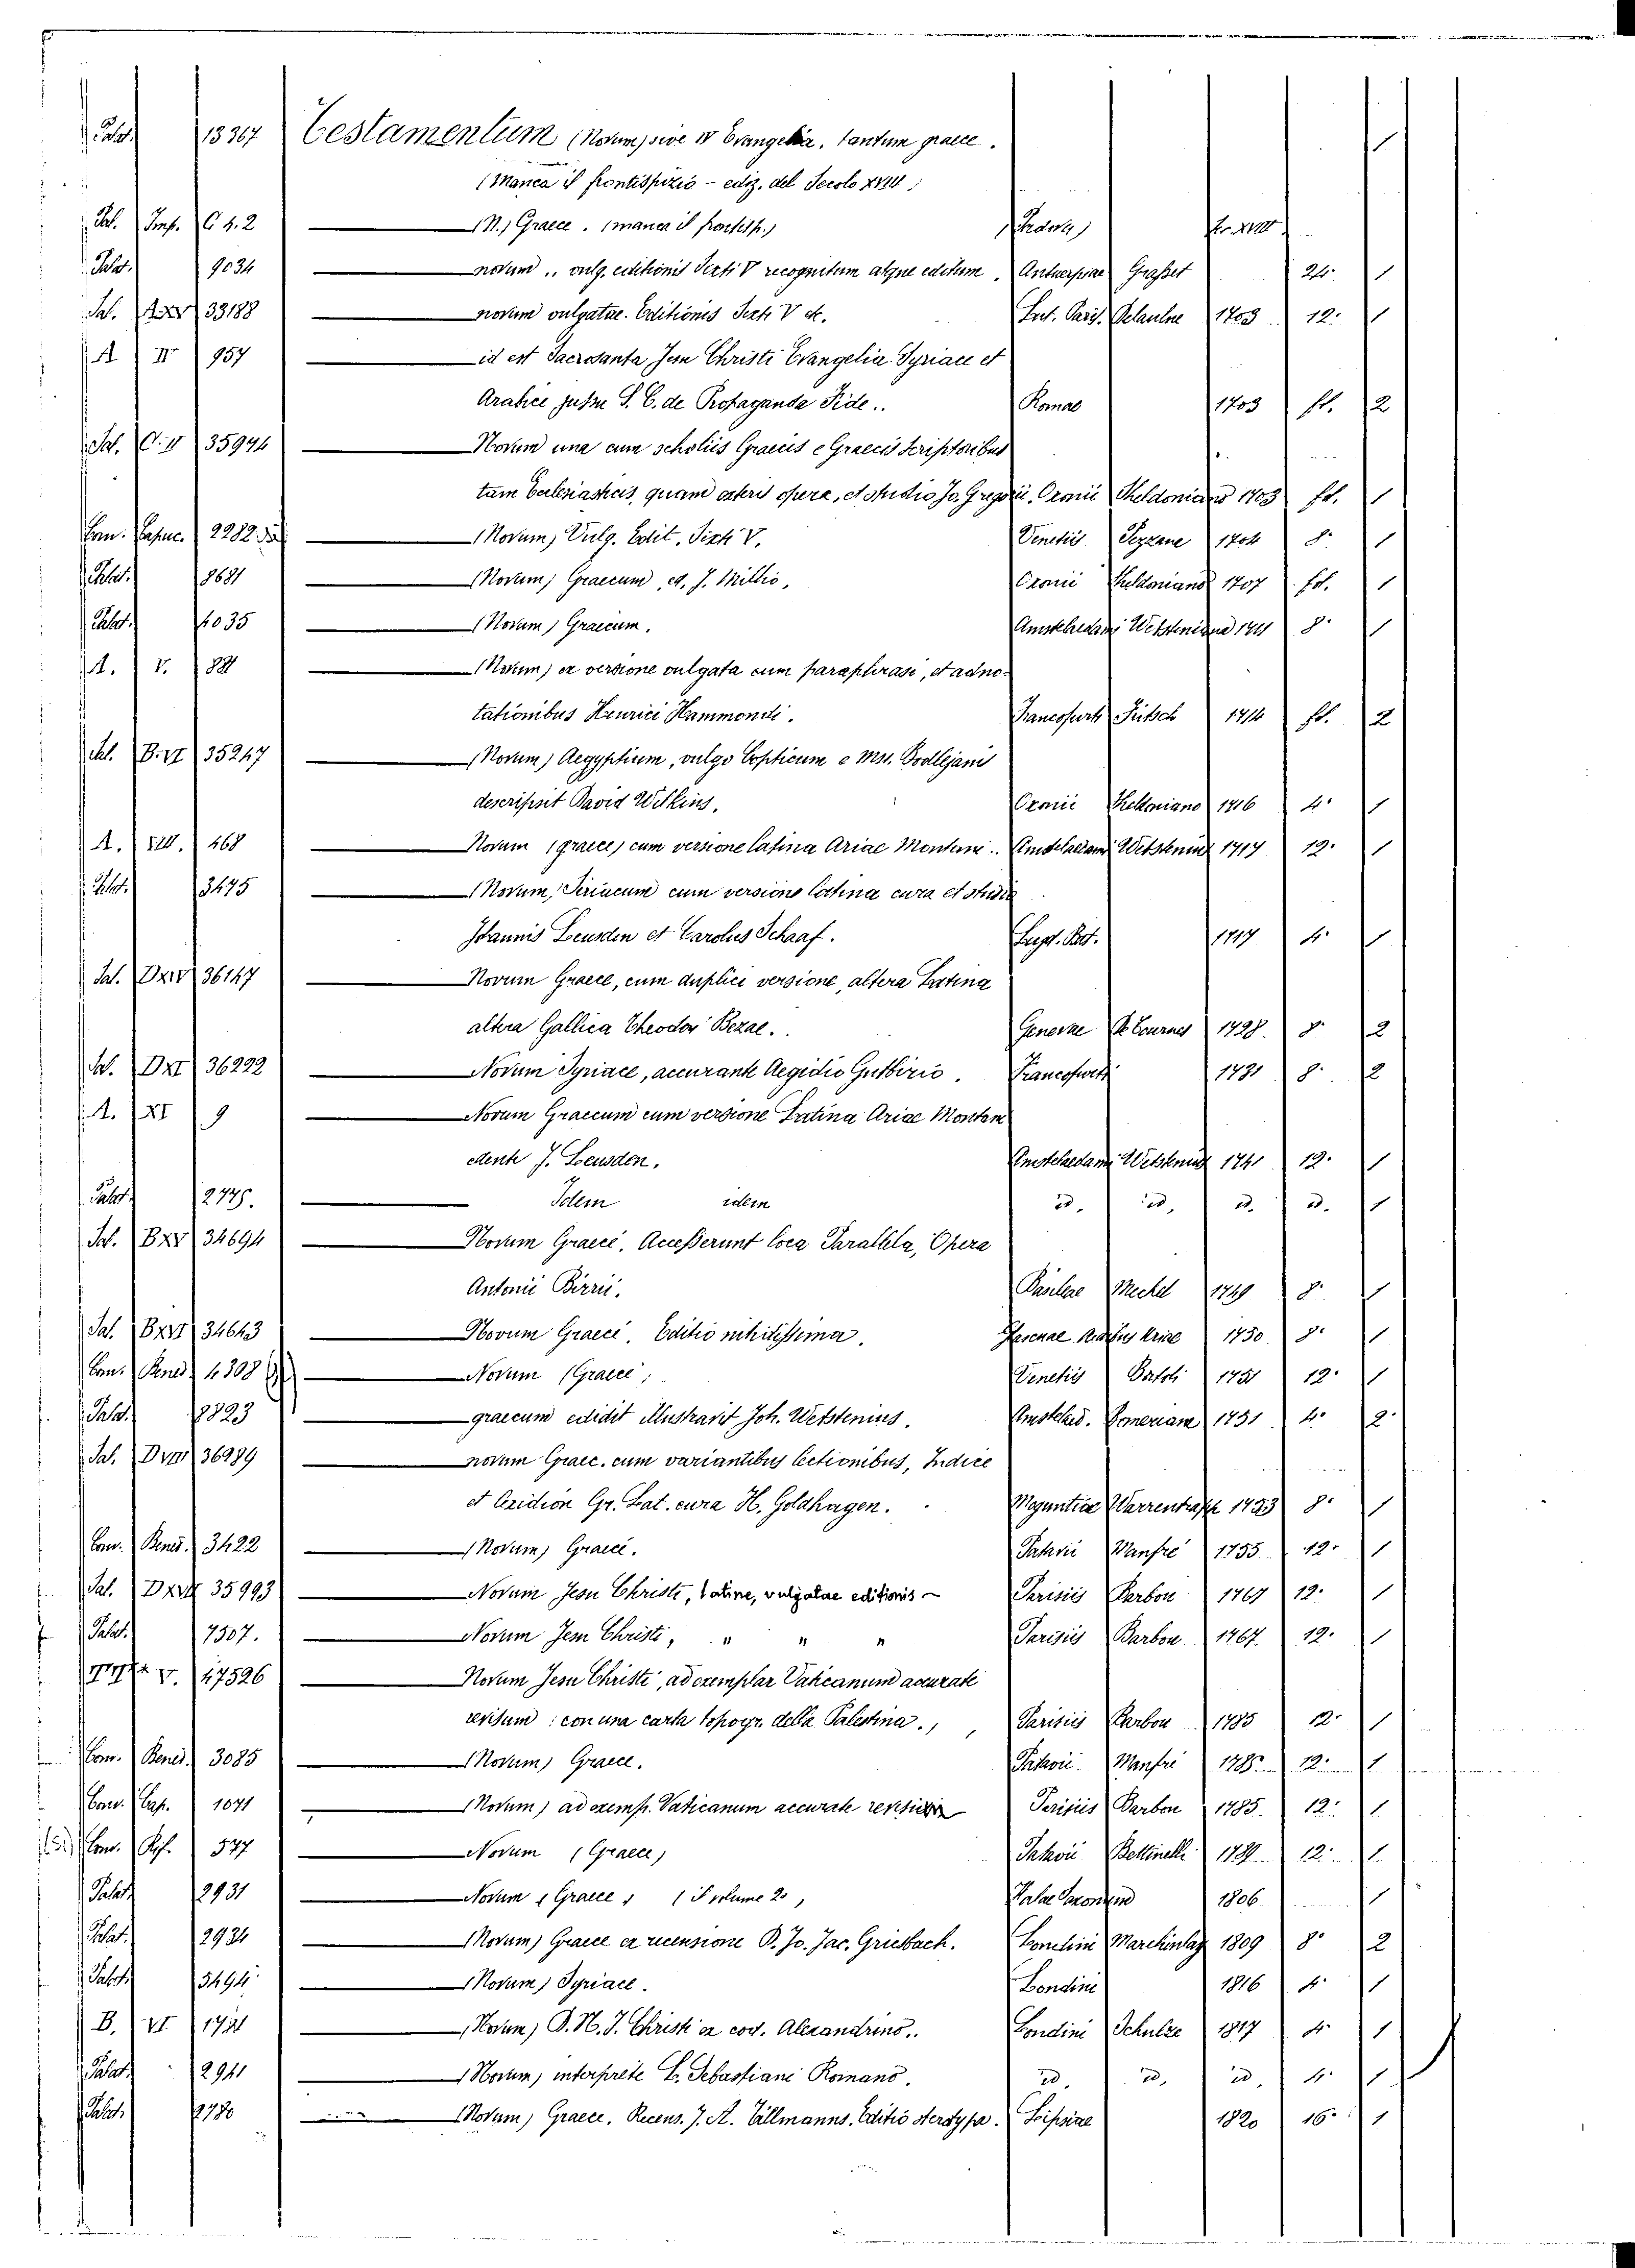 Palat. 13367 Testamentum (Novum) sive IV Evangelia, tantum graece.
(Manca il frontispizio - ediz. del Secolo XVII)
Sal. Imp. C 4. 2 — (N.) Graece. (manca il frontisp.)
Palat. 9034 — novum .. vulg. editionis Sixti V recognitum atque editum. Antuerpiae Grasset 24. 1
Sal. 33188 — novum vulgatae. Editionis Sixti V &. Lut. Paris. Delaulne 1703 12. 1
A IV 957 — id est Sacrosanta Jesu Christi Evangelia Syriace et
Arabice jussu S. C. de Propaganda Fide.. Romae 1703 fl. 2
Sal. C. V 35974 — Novum una cum scholiis Graecis e Graecis scriptoribus
tam Ecclesiasticis, quam exteris opera, et studio Jo. Gregorii. Oxonii Sheldoniano 1703 fol. 1
Con. Capuc. 2282 — (Novum) Vulg. Edit. Sixti V. Venetiis Pezzane 1704 8. 1
Palat. 8681 — (Novum) Graecum, ed. J. Millio, Oxonii Sheldoniano 1707 fol. 1
Palat. 1035 — (Novum) Graecum. Amstelaedami Wetsteniana 1711 8. 1
A. V. 881 — (Novum) ex versione vulgata cum paraphrasi, et adno-
tationibus Henrici Hammondi. Francofurti Fritsch 1714 fl. 2
Sal. B. VI 35247 — (Novum) Aegyptium, vulgo Copticum e Mss. Bodlejanis
descripsit David Wilkins. Oxonii Sheldoniano 1716 4. 1
A. XIII. 468 — Novum (graece) cum versione latina Ariae Montani.. Amstelaedami Wetstenius 1717 12. 1
Palat. 3475 — (Novum) Siriacum cum versione latina cura et studio
Johannis Leusden et Carolus Schaaf. Lugd. Bat. 1717 4. 1
Sal. DXIV 36147 — Novum Graece, cum duplici versione, altera Latina
altera Gallica Theodori Bezae. Genevae De Tournes 1728. 8. 2
Sal. DXI 36222 — Novum Syriace, accurante Aegidio Gutbirio. Francofurti 1731 8. 2
A. XI 9 — Novum Graecum cum versione Latina Ariae Montani
edente J. Leusden. Amstelaedami Wetstenius 1741 12. 1
Palat. 2775. — Idem idem id. id. id. id. 1
Sal. BXV 34694 — Novum Graece. Accesserunt loca Parallela, Opera
Antonii Birrii. Basileae Mechel 1749 8. 1
Sal. BXVI 34643 — Novum Graece. Editio nitidissima. 1750 8. 1
Con. Bened. 4308 — Novum (Graece) Venetiis Bortoli 1751 12. 1
Palat. 8823 — graecum edidit illustravit Joh. Wetstenius. Amstelaed. Domeriana 1751 4. 2.
Sal. DVIII 36989 — novum Graec. cum variantibus lectionibus, Indice
et Crisicon Gr. Lat. cura H. Goldhagen. Moguntiae Warrentrapp 1753 8. 1
Con. Bened. 3422 — (Novum) Graece. Patavii Manfrè 1755. 12. 1
Sal. DXVI 35993 — Novum Jesu Christi, latine, vulgatae editionis - Parisiis Barbou 1767 12. 1
Palat. 7507. — Novum Jesu Christi, " " " Parisiis Barbou 1767. 12. 1
V. 47526 — Novum Jesu Christi, ad exemplar Vaticanum accurate
revisum : con una carta topogr. della Palestina. Parisiis Barbou 1785 12. 1
Con. Bened. 3085 — (Novum) Graece. Patavii. Manfrè 1785. 12. 1
Con. Cap. 1071 — (Novum) ad exemp. Vaticanum accurate revisum Parisiis Barbou 1785. 12. 1.
Con. Rif. 577 — Novum (Graece) Patavii Bettinelli 1789 12. 1.
Palat. 2931 — Novum (Graece) (Volume 2o) Halae Saxonum 1806. 1
Palat. 2934 — (Novum) Graece ex recensione D. Jo. Jac. Griesbach. Londini 1809 8. 2
Palat. 3494 — (Novum) Syriace. Londini 1816 4. 1
B. VI 1721 — (Novum) D. N. J. Christi ex cod. Alexandrino.. Londini Schulze 1817 4. 1
Palat. 2941 — (Novum) interprete L. Sebastiani Romano. id. id. id. 4. 1
Palat. 2780 — (Novum) Graece. Recens. J. A. Tillmanns. Editio sterotypa. Lipsiae 1820 16. 1